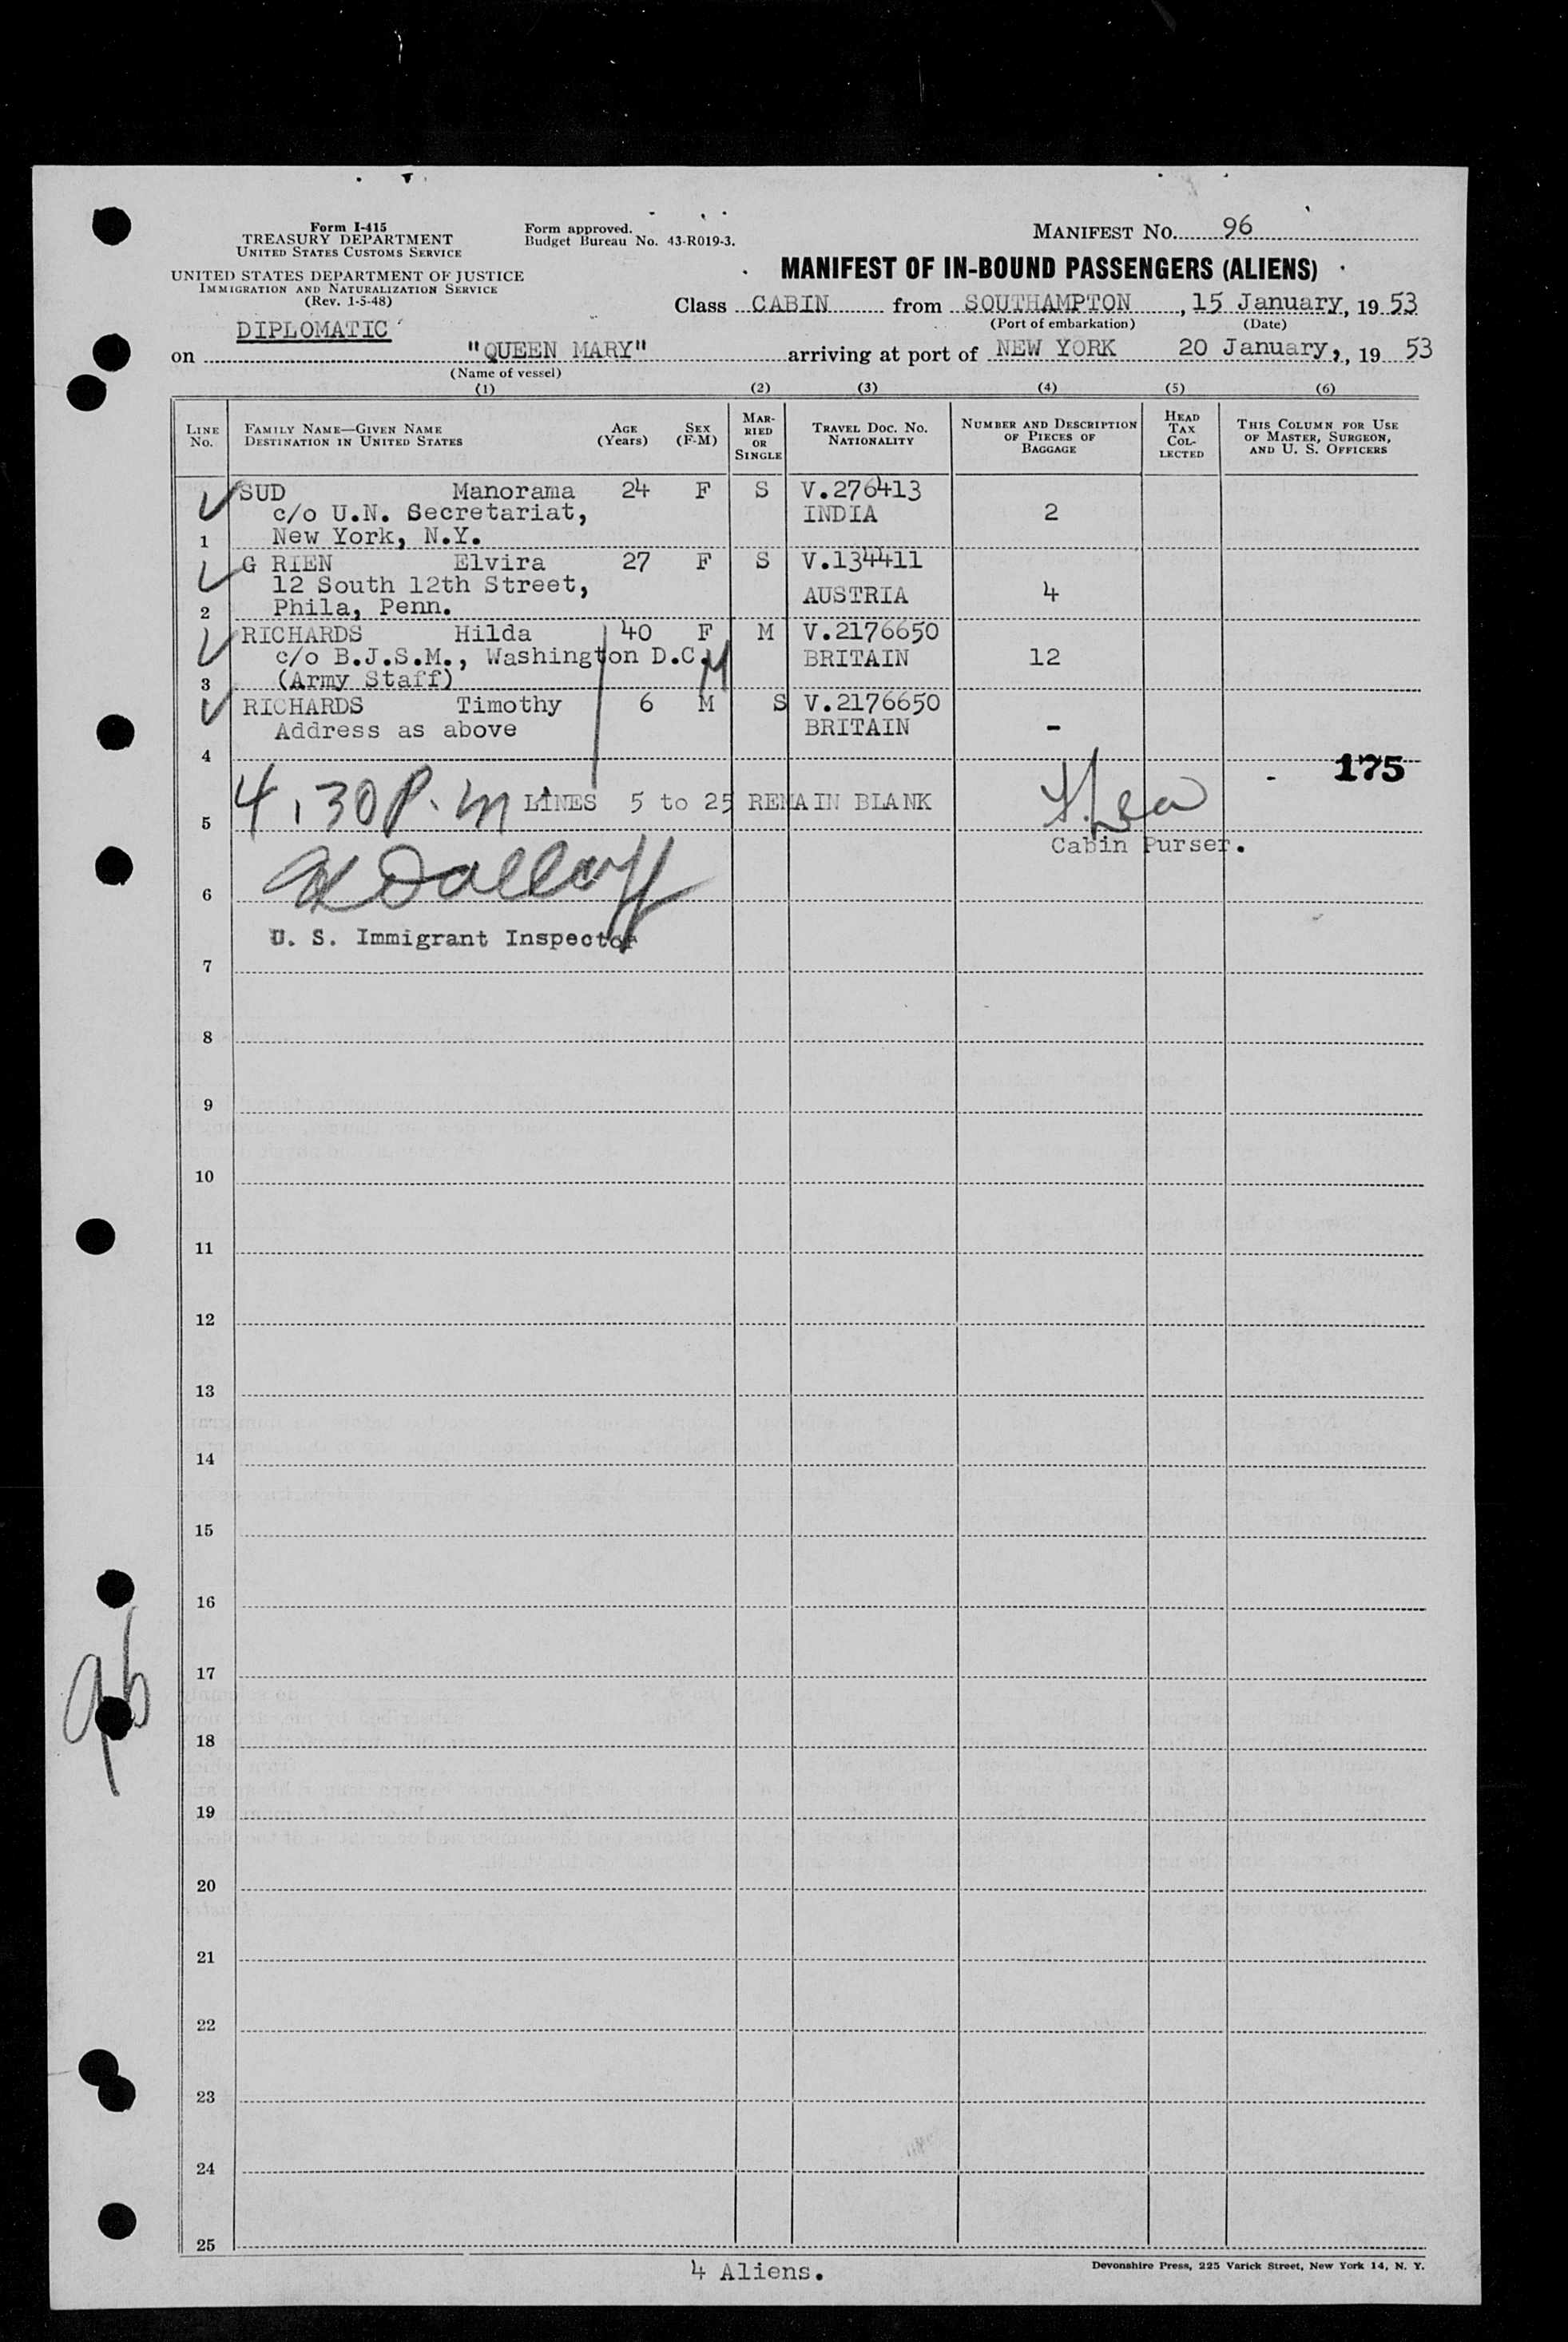 Form I-415
TREASURY DEPARTMENT
UNITED STATES CUSTOMS SERVICE
UNITED STATES DEPARTMENT OF JUSTICE
IMMIGRATION AND NATURALIZATION SERVICE
(Rev. 1-5-48)
Form approved.
Budget Bureau No. 43-R019-3.
MANIFEST NO. 96
MANIFEST OF IN-BOUND PASSENGERS (ALIENS)
Class CABIN from SOUTHAMPTON, 15 January, 19 53
(Port of embarkation) (Date)
DIPLOMATIC
on "QUEEN MARY" arriving at port of NEW YORK 20 January,, 19 53
(Name of vessel)
(1) (2) (3) (4) (5) (6)
LINE No. FAMILY NAME—GIVEN NAME DESTINATION IN UNITED STATES AGE (Years) SEX (F-M) MARRIED OR SINGLE TRAVEL DOC. NO. NATIONALITY NUMBER AND DESCRIPTION OF PIECES OF BAGGAGE HEAD TAX COLLECTED THIS COLUMN FOR USE OF MASTER, SURGEON, AND U. S. OFFICERS
SUD Manorama 24 F S V.276413
c/o U.N. Secretariat, INDIA 2
1 New York, N.Y.
G RIEN Elvira 27 F S V.134411
12 South 12th Street, AUSTRIA 4
2 Phila, Penn.
RICHARDS Hilda 40 F M V.2176650
c/o B.J.S.M., Washington D.C. BRITAIN 12
3 (Army Staff)
RICHARDS Timothy 6 M S V.2176650
Address as above BRITAIN -
4
175
4.30 P.m LINES 5 to 25 REMAIN BLANK
5
Cabin Purser.
6
U. S. Immigrant Inspector
7
8
9
10
11
12
13
14
15
16
17
96
18
19
20
21
22
23
24
25
4 Aliens.
Devonshire Press, 225 Varick Street, New York 14, N. Y.